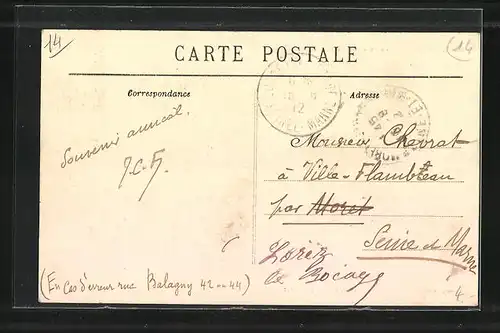 14
(14
CARTE POSTALE
Correspondance
Adresse
12
Souvenir amical.
J.C.F.
Monsieur Chevrat
à Ville-Flambteau
par Moret
Seine et Marne
Lorrez
le Bocage
(En cas d'erreur rue Balagny 42 ou 44)
4